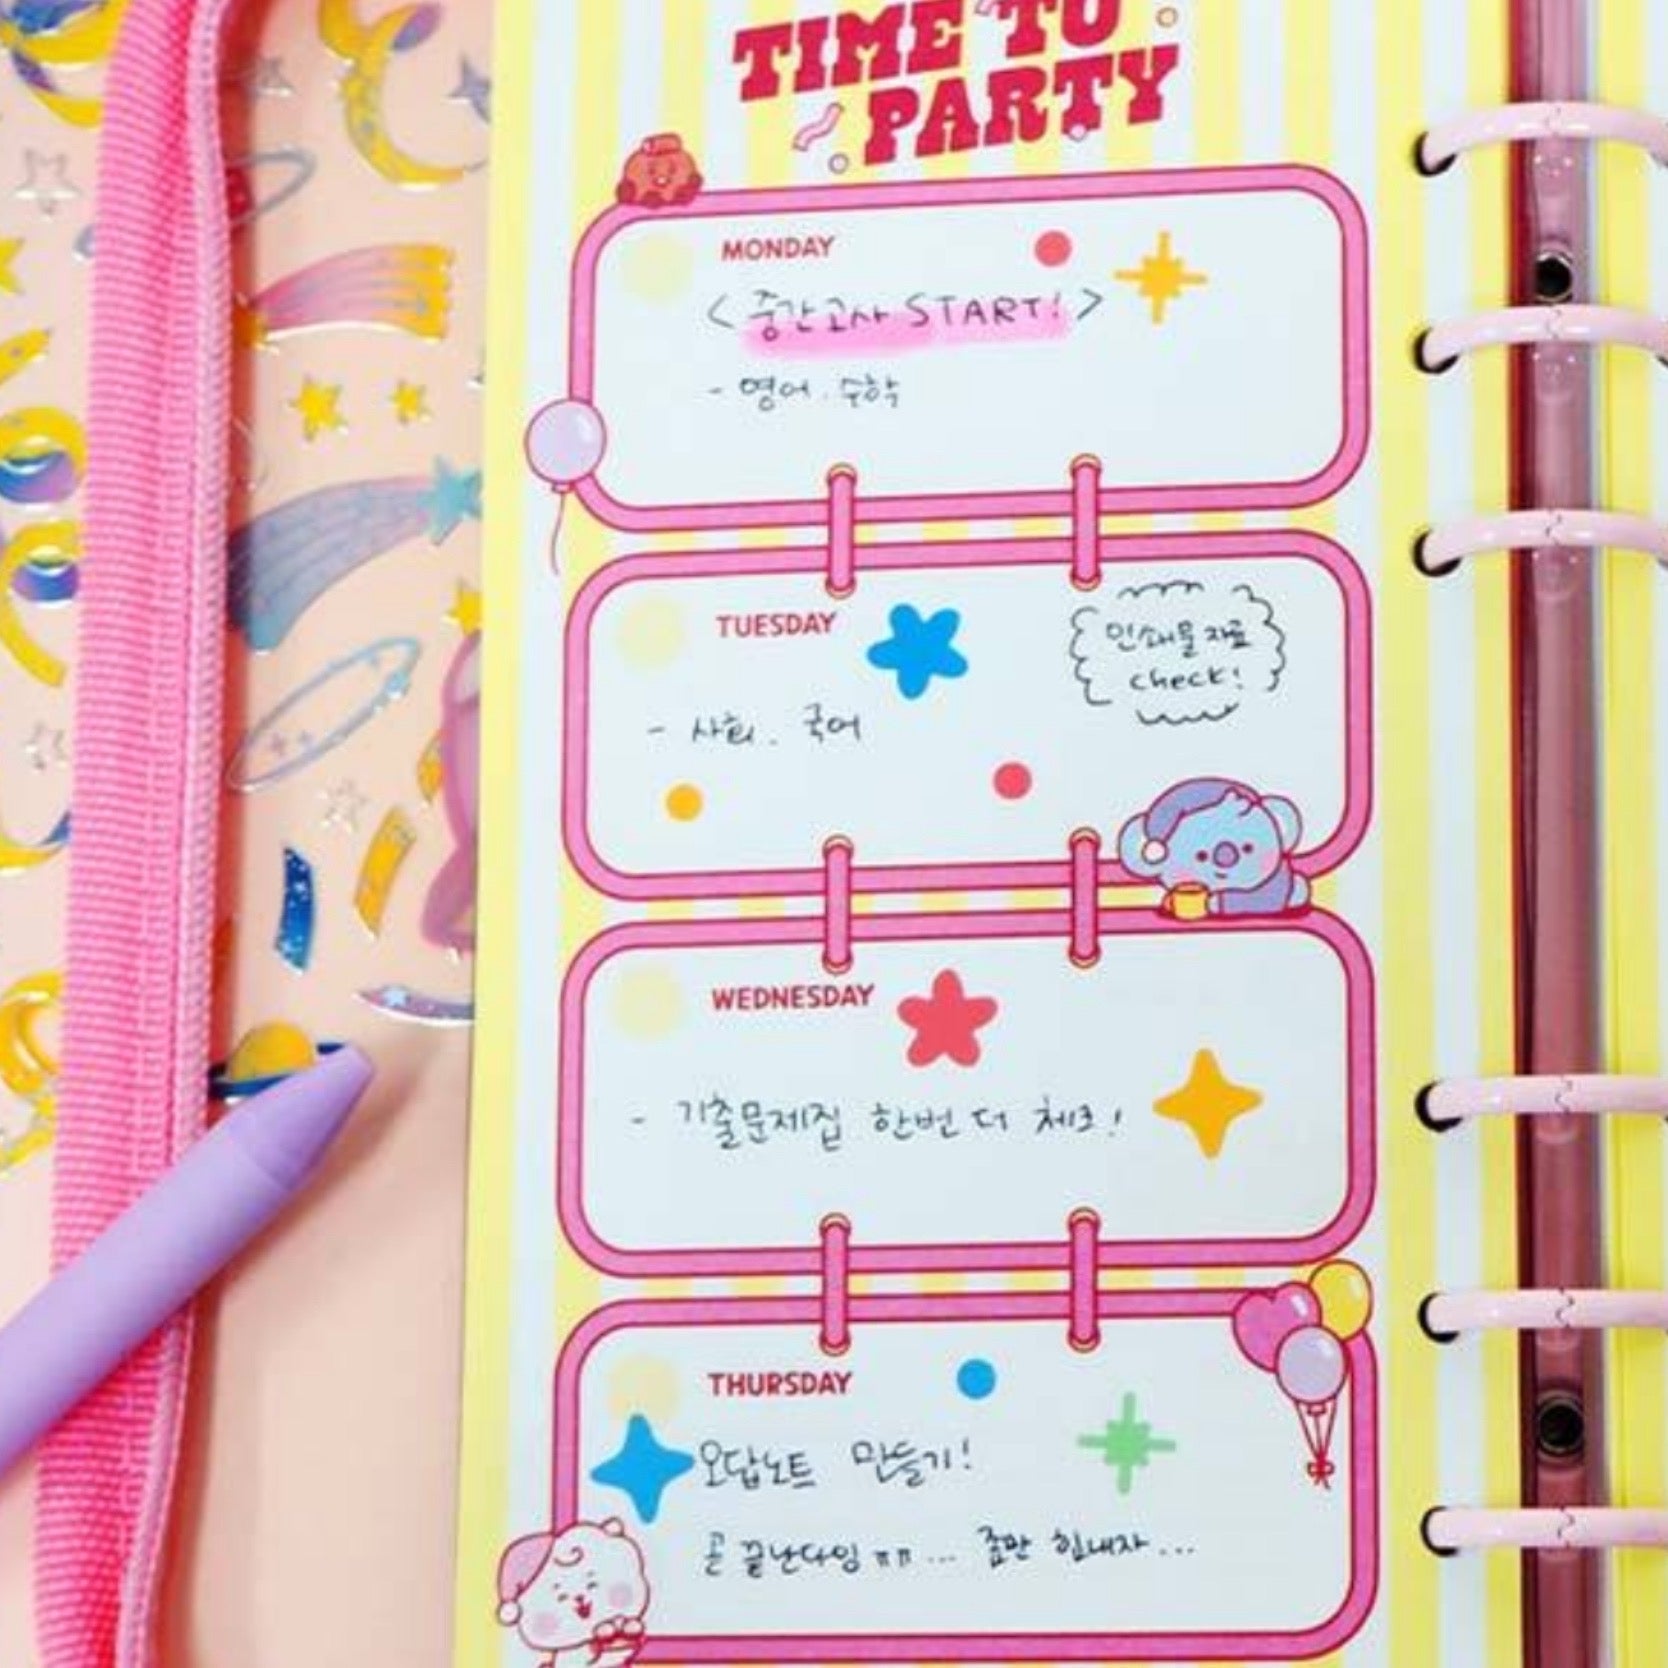 TIME TO
PARTY
MONDAY
<중간고사 START!>
- 영어. 수학
TUESDAY
인쇄물 자료
check!
- 사회. 국어
WEDNESDAY
- 기출문제집 한번 더 체크!
THURSDAY
오답노트 만들기!
곧 끝난다잉 ㅠㅠ... 좀만 힘내자...